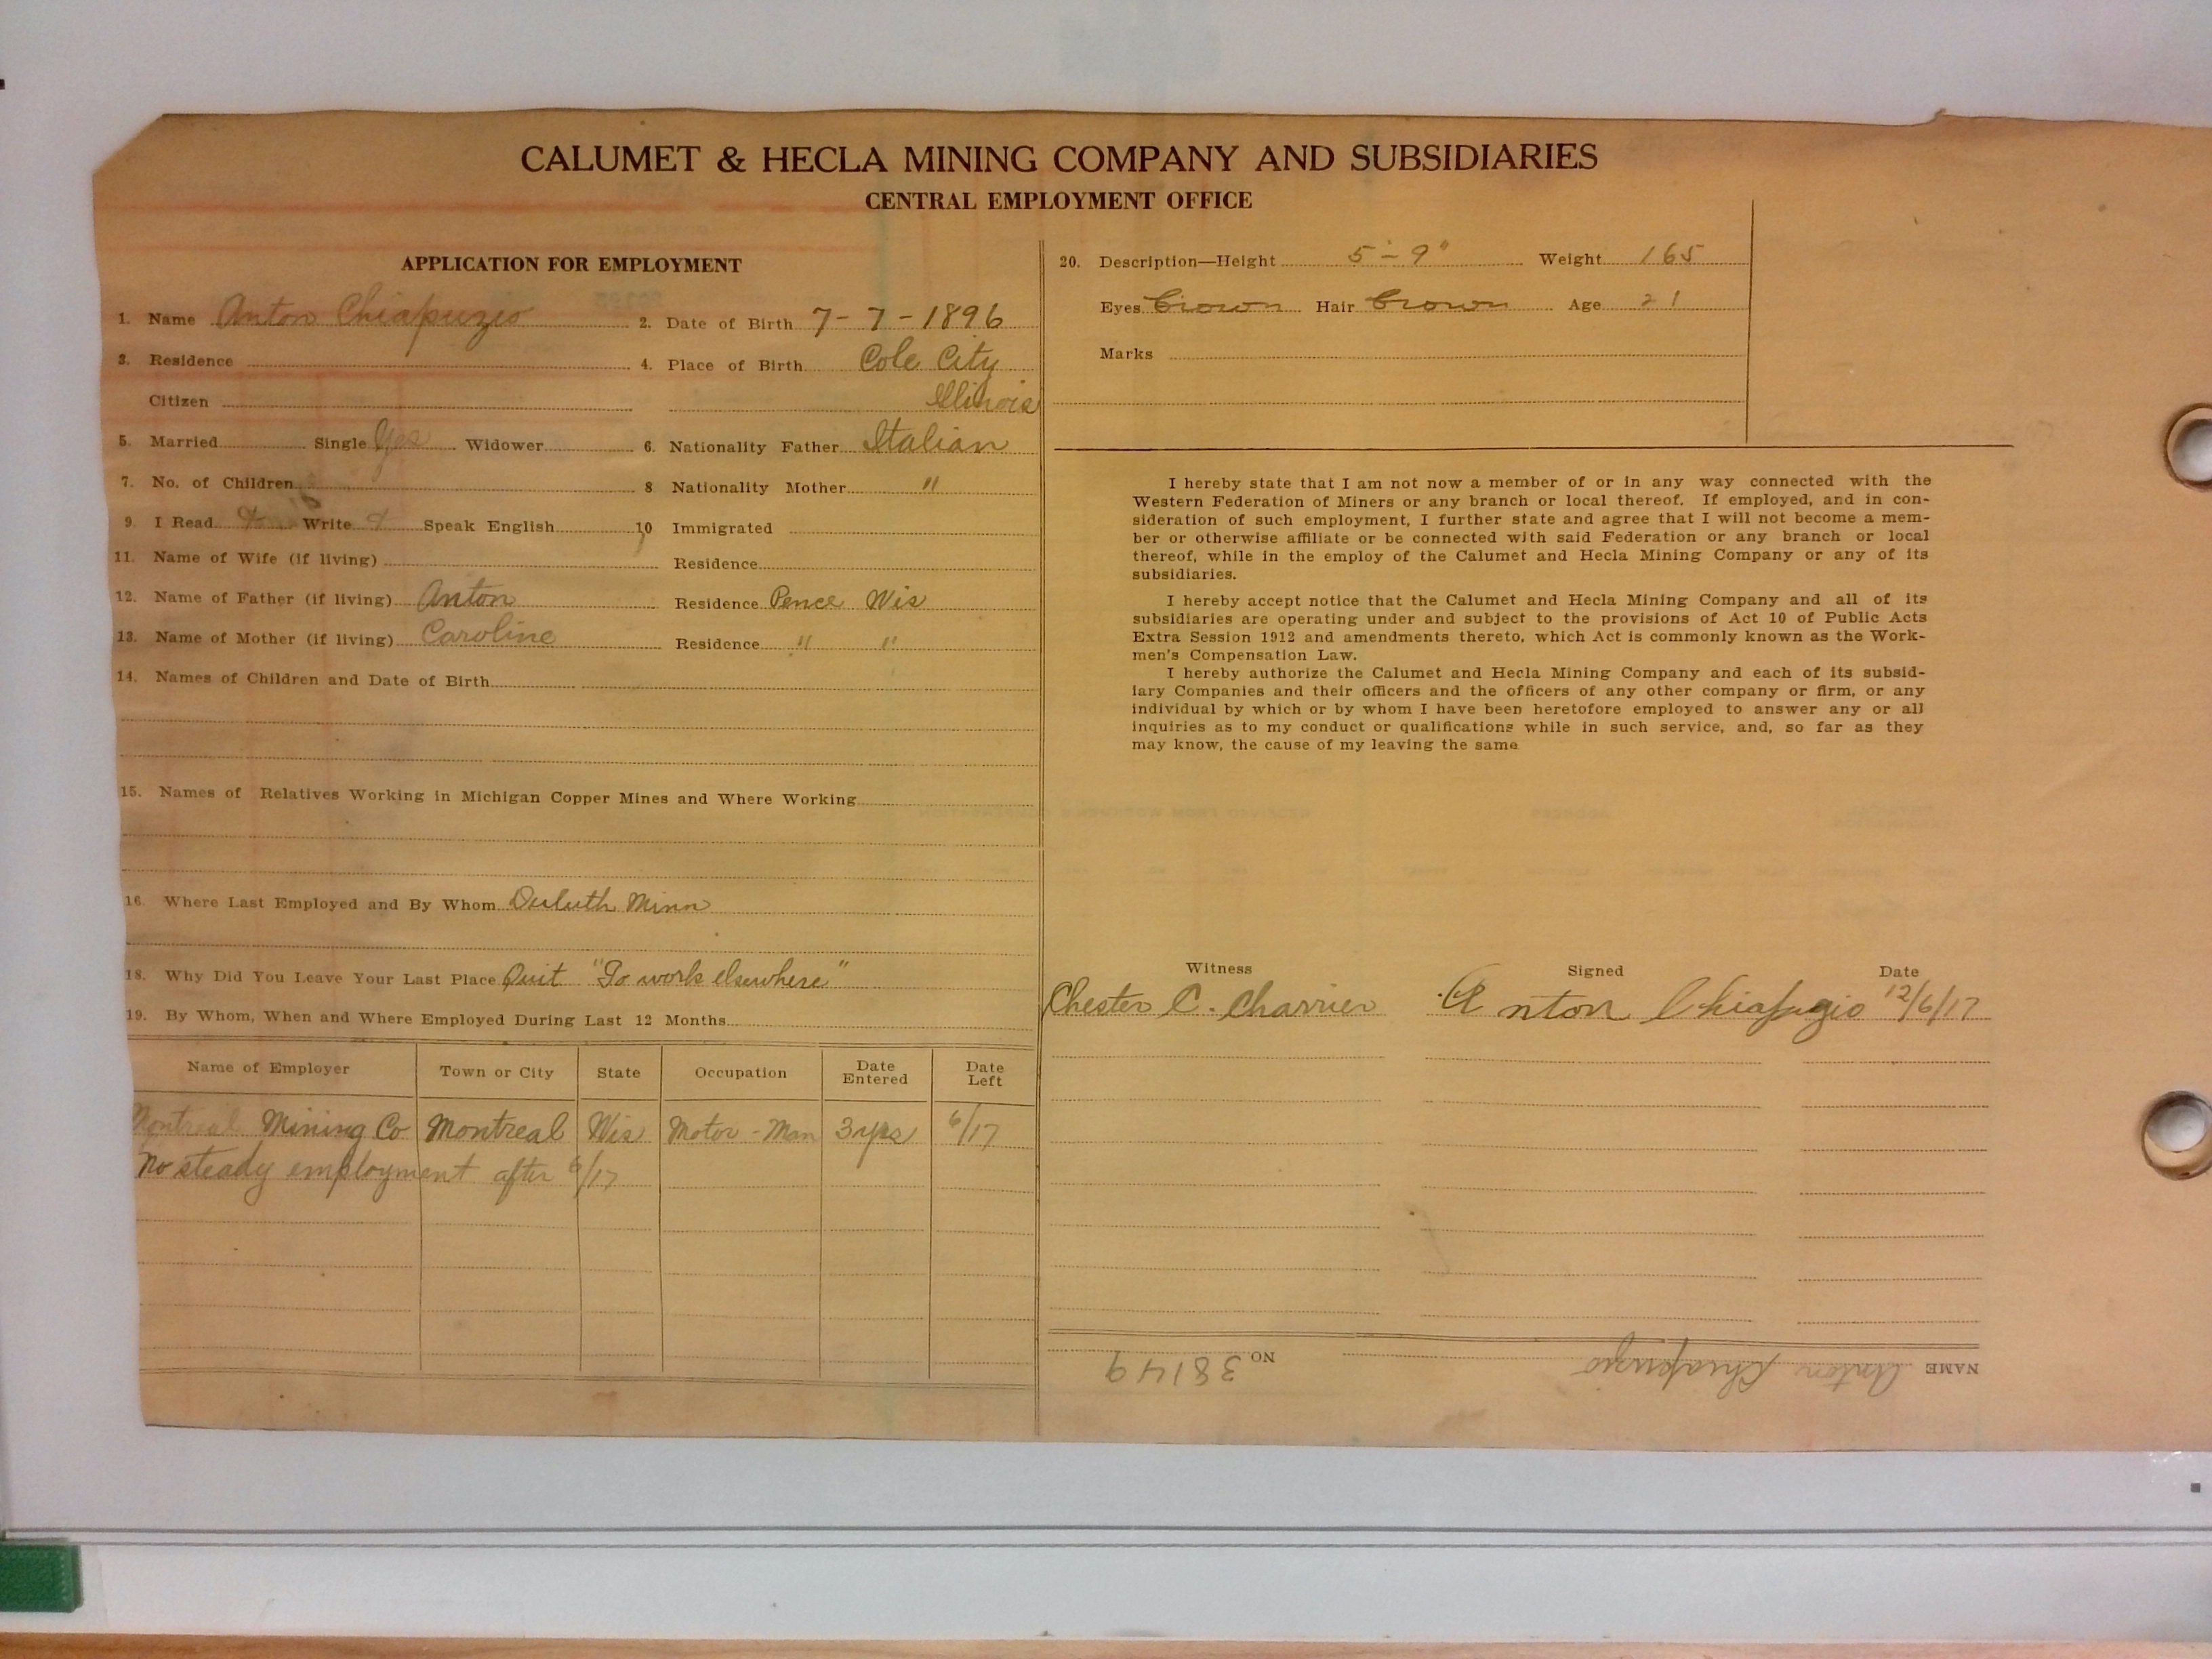 CALUMET & HECLA MINING COMPANY AND SUBSIDIARIES
CENTRAL EMPLOYMENT OFFICE
APPLICATION FOR EMPLOYMENT
1. Name Anton Chiapuzio 2. Date of Birth 7-7-1896
3. Residence 4. Place of Birth Cole City
Citizen Illinois
5. Married Single Yes Widower 6. Nationality Father Italian
7. No. of Children 8 Nationality Mother "
9. I Read Write Speak English 10 Immigrated
11. Name of Wife (if living) Residence
12. Name of Father (if living) Anton Residence Pence Wis
13. Name of Mother (if living) Caroline Residence " "
14. Names of Children and Date of Birth
15. Names of Relatives Working in Michigan Copper Mines and Where Working
16. Where Last Employed and By Whom Duluth Minn
18. Why Did You Leave Your Last Place Quit "To work elsewhere"
19. By Whom, When and Where Employed During Last 12 Months
Name of Employer Town or City State Occupation Date Entered Date Left
Montreal Mining Co Montreal Wis Motor-Man 3 yrs 6/17
No steady employment after 6/17
20. Description—Height 5-9" Weight 165
Eyes Brown Hair Brown Age 21
Marks
I hereby state that I am not now a member of or in any way connected with the
Western Federation of Miners or any branch or local thereof. If employed, and in con-
sideration of such employment, I further state and agree that I will not become a mem-
ber or otherwise affiliate or be connected with said Federation or any branch or local
thereof, while in the employ of the Calumet and Hecla Mining Company or any of its
subsidiaries.
I hereby accept notice that the Calumet and Hecla Mining Company and all of its
subsidiaries are operating under and subject to the provisions of Act 10 of Public Acts
Extra Session 1912 and amendments thereto, which Act is commonly known as the Work-
men's Compensation Law.
I hereby authorize the Calumet and Hecla Mining Company and each of its subsid-
iary Companies and their officers and the officers of any other company or firm, or any
individual by which or by whom I have been heretofore employed to answer any or all
inquiries as to my conduct or qualifications while in such service, and, so far as they
may know, the cause of my leaving the same
Witness Signed Date
Chester C. Charrier Anton Chiapuzio 12/6/17
NAME Anton Chiapuzio NO 38149